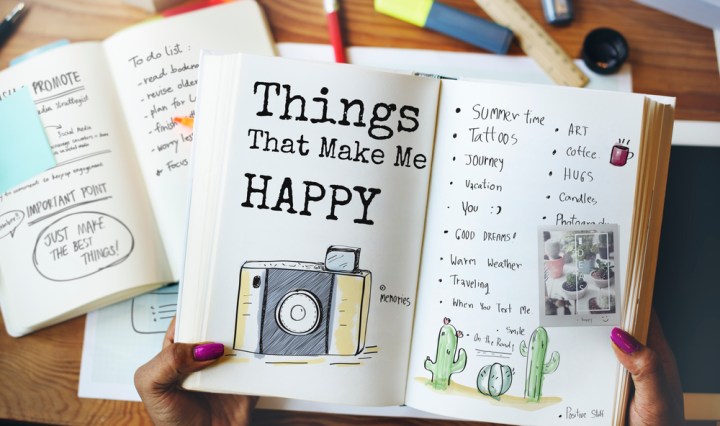 PROMOTE
Social Media
IMPORTANT POINT
JUST MAKE
THE BEST
THINGS!
To do list :
- read
- revise
- plan for
- worry
* Focus
Things
That Make Me
HAPPY
© memories
• Summer time
• Tattoos
• Journey
• Vacation
• You :)
• GOOD DREAMS!
• Warm Weather
• Traveling
• When You Text Me
• Smile
• On the Road
• ART
• Coffee
• HUGS
• Candles
• Positive Stuff